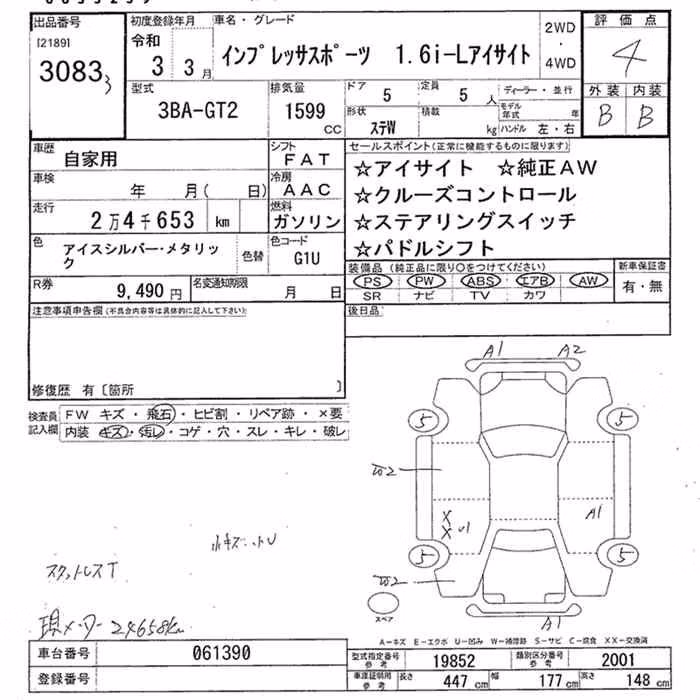 出品番号
[2189]
3083 3
初度登録年月
令和
3 3月
車名・グレード
インプレッサスポーツ 1.6i-Lアイサイト
2WD
・
4WD
評価点
4
外装 内装
B B
型式
3BA-GT2
排気量
1599
CC
ドア
5
定員
5 人
形状
ステW
積載
kg
ディーラー・並行
モデル年式 年
ハンドル 左・右
車歴
自家用
シフト
FAT
車検
年 月( 日)
冷房
AAC
走行
2万4千653 km
燃料
ガソリン
色
アイスシルバー・メタリック
色替
色コード
G1U
R券
9,490円
名変通知期限
月 日
セールスポイント(正常に機能するものに限ります)
☆アイサイト ☆純正AW
☆クルーズコントロール
☆ステアリングスイッチ
☆パドルシフト
装備品 (純正品に限り○をつけてください)
PS PW ABS エアB AW
SR ナビ TV カワ
新車保証書
有・無
後日品
注意事項申告欄(不具合内容等は具体的に記入して下さい)
修復歴 有〔箇所 〕
検査員記入欄
FW キズ・飛石・ヒビ割・リペア跡・×要
内装 キズ・汚レ・コゲ・穴・スレ・キレ・破レ
A1 A2
5 5
W2
X
X U1
A1
5 5
W2
A1
スペア
スタットレスT
現メーター24658km
A-キズ E-エクボ U-凹み W-補修跡 S-サビ C-腐食 XX-交換済
車台番号
061390
登録番号
型式指定番号
参考
19852
類別区分番号
参考
2001
車庫証明用
参考
長さ 447cm 幅 177cm 高さ 148cm